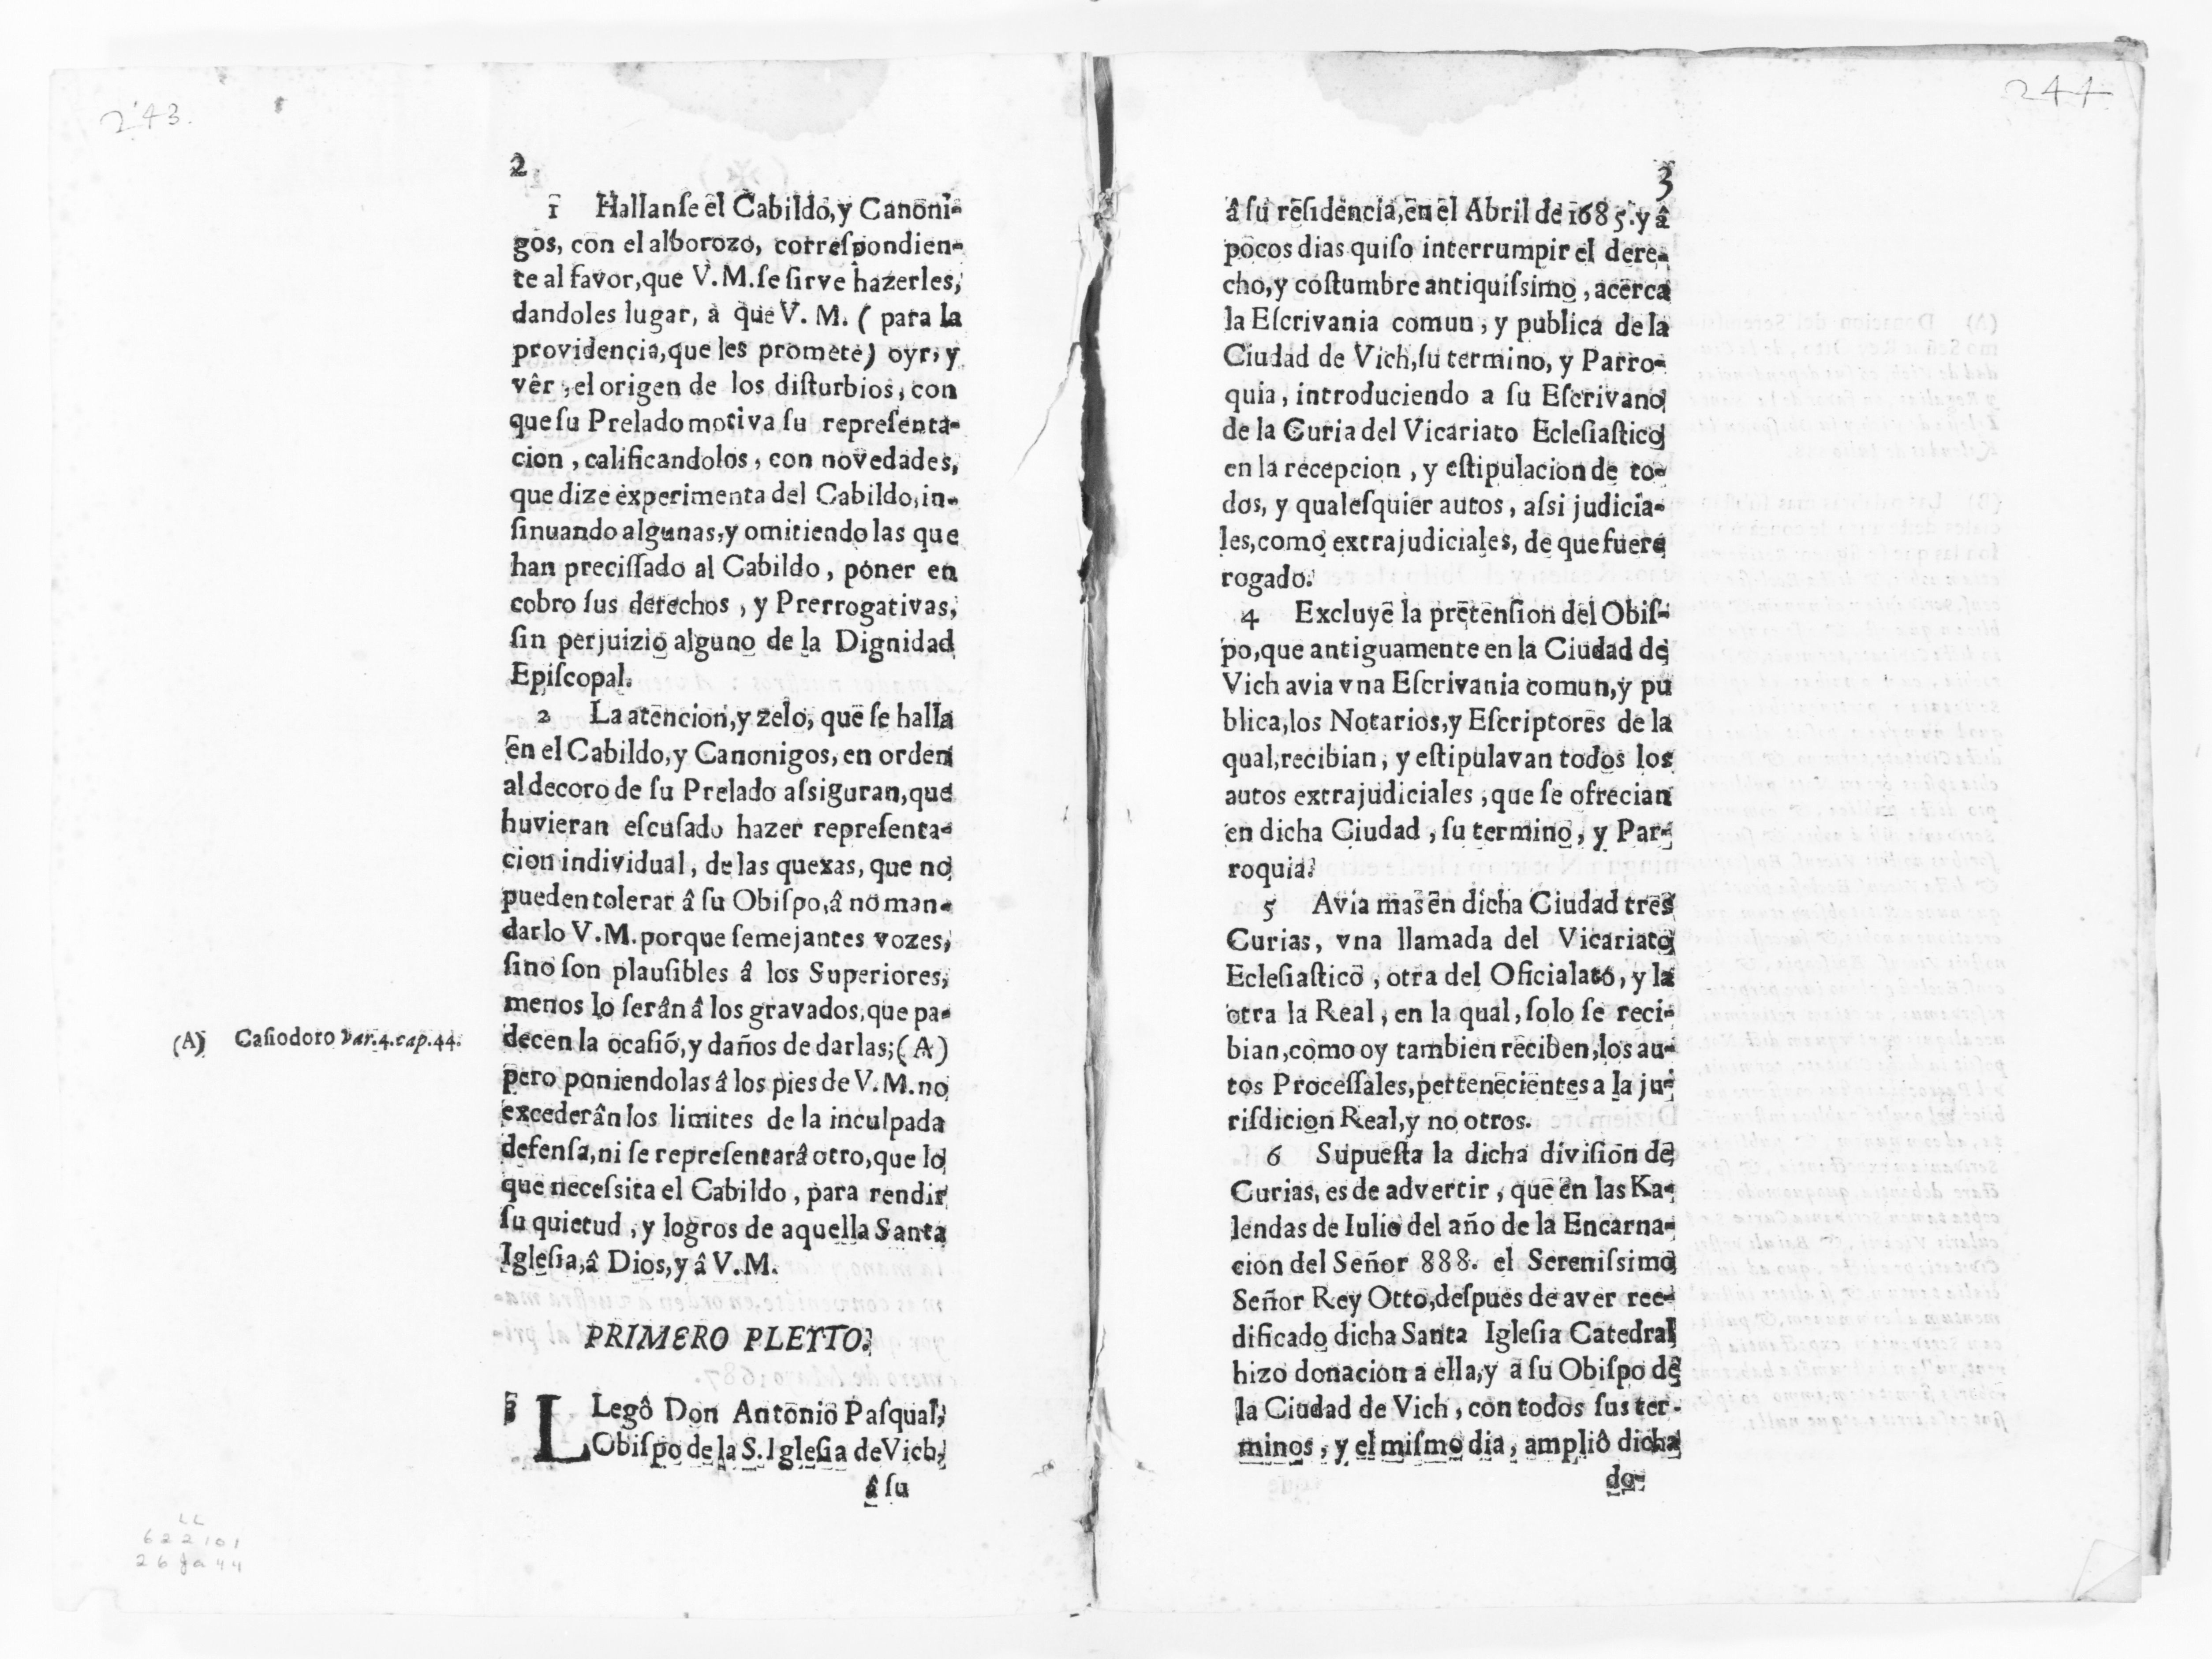 243.
2
1 Hallanſe el Cabildo, y Canoni-
gos, con el alborozo, correſpondien-
te al favor, que V. M. ſe ſirve hazerles,
dandoles lugar, à que V. M. ( para la
providencia, que les promete) oyr, y
vêr, el origen de los diſturbios, con
que ſu Prelado motiva ſu repreſenta-
cion, calificandolos, con novedades,
que dize experimenta del Cabildo, in-
ſinuando algunas, y omitiendo las que
han preciſſado al Cabildo, poner en
cobro ſus derechos, y Prerrogativas,
ſin perjuizio alguno de la Dignidad
Epiſcopal.
2 La atencion, y zelo, que ſe halla
en el Cabildo, y Canonigos, en orden
al decoro de ſu Prelado aſsiguran, que
huvieran eſcuſado hazer repreſenta-
cion individual, de las quexas, que no
pueden tolerar â ſu Obiſpo, â no man-
darlo V. M. porque ſemejantes vozes,
ſino ſon plauſibles â los Superiores,
menos lo ſerân â los gravados, que pa-
decen la ocaſiõ, y daños de darlas; (A)
pero poniendolas â los pies de V. M. no
excederân los limites de la inculpada
defenſa, ni ſe repreſentarâ otro, que lo
que neceſsita el Cabildo, para rendir
ſu quietud, y logros de aquella Santa
Igleſia, â Dios, y â V. M.
(A) Caſiodoro Var. 4. cap. 44.
PRIMERO PLEYTO.
3 LLegô Don Antonio Paſqual,
Obiſpo de la S. Igleſia de Vich,
â ſu
LL
622101
26 Ja 44
244
3
â ſu reſidencia, en el Abril de 1685. y â
pocos dias quiſo interrumpir el dere-
cho, y coſtumbre antiquiſsimo, acerca
la Eſcrivania comun, y publica de la
Ciudad de Vich, ſu termino, y Parro-
quia, introduciendo a ſu Eſcrivano
de la Curia del Vicariato Ecleſiaſtico
en la recepcion, y eſtipulacion de to-
dos, y qualeſquier autos, aſsi judicia-
les, como extrajudiciales, de que fuere
rogado.
4 Excluye la pretenſion del Obiſ-
po, que antiguamente en la Ciudad de
Vich avia vna Eſcrivania comun, y pu
blica, los Notarios, y Eſcriptores de la
qual, recibian, y eſtipulavan todos los
autos extrajudiciales, que ſe ofrecian
en dicha Ciudad, ſu termino, y Par-
roquia.
5 Avia mas en dicha Ciudad tres
Curias, vna llamada del Vicariato
Ecleſiaſtico, otra del Oficialato, y la
otra la Real, en la qual, ſolo ſe reci-
bian, como oy tambien reciben, los au-
tos Proceſſales, pertenecientes a la ju-
riſdicion Real, y no otros.
6 Supueſta la dicha diviſion de
Curias, es de advertir, que en las Ka-
lendas de Iulio del año de la Encarna-
cion del Señor 888. el Sereniſsimo
Señor Rey Otto, deſpues de aver ree-
dificado dicha Santa Igleſia Catedral
hizo donacion a ella, y a ſu Obiſpo de
la Ciudad de Vich, con todos ſus ter-
minos, y el miſmo dia, ampliô dicha
do-